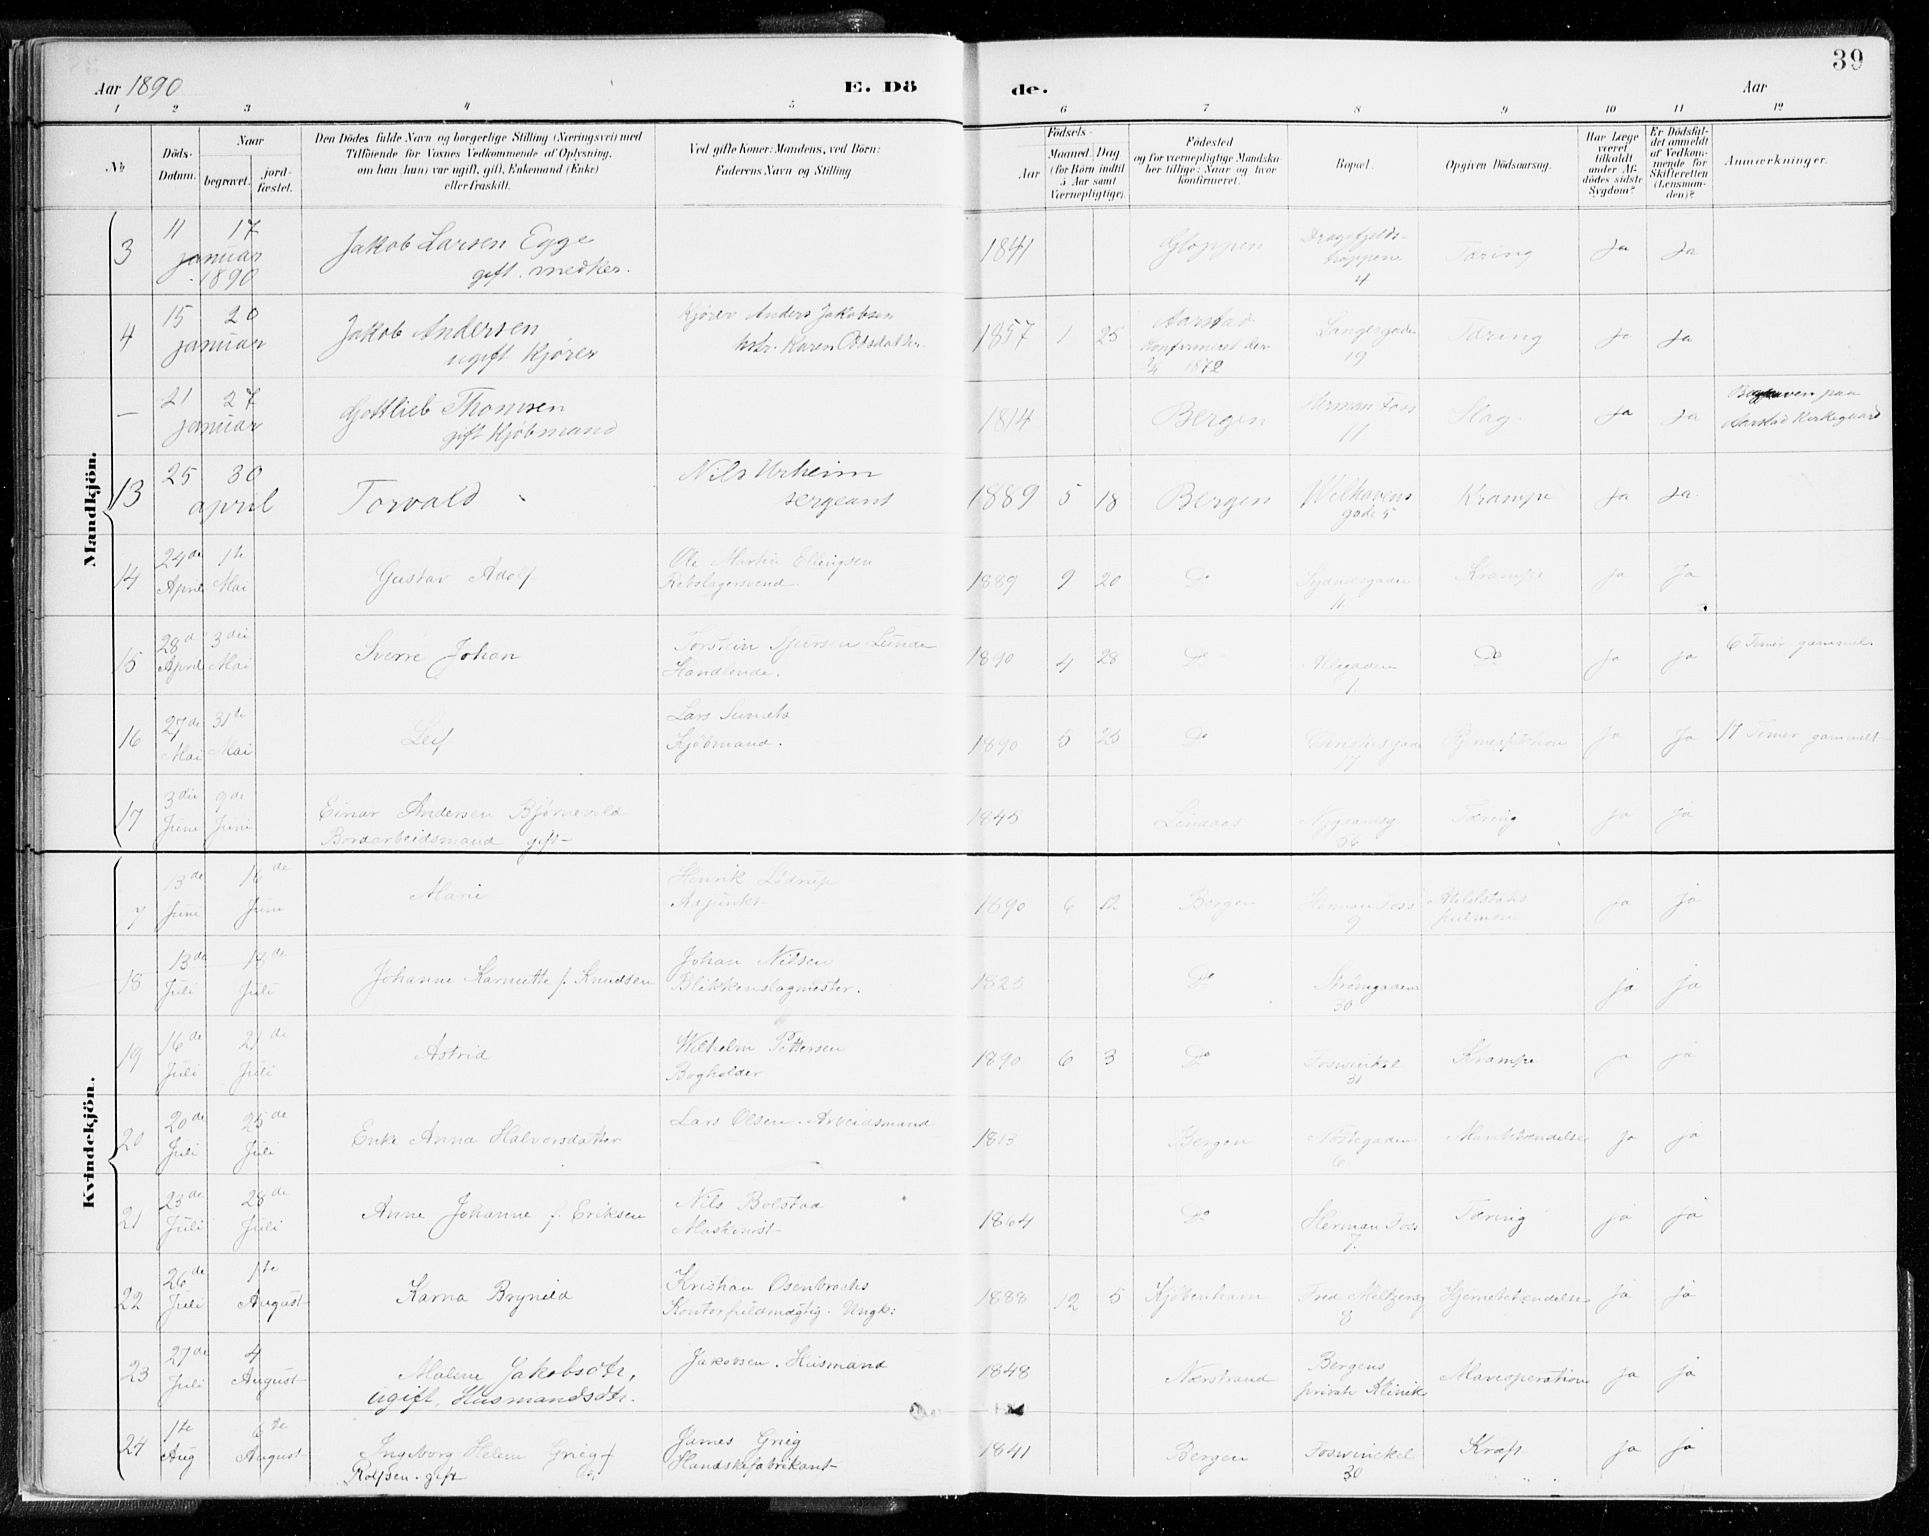 39
Aar 1890
E. Dö
de.
Aar
1 2 3 4 5 6 7 8 9 10 11 12
No
Döds-Datum.
Naar
begravet.
jordfæstet.
Den Dödes fulde Navn og borgerlige Stilling (Næringsvei) med
Tilföiende for Voxnes Vedkommende af Oplysning,
om han (hun) var ugift, gift, Enkemand (Enke)
eller fraskilt.
Ved gifte Koner: Mandens, ved Börn:
Faderens Navn og Stilling
Födsels-
Aar
Maaned Dag
(for Börn indtil
5 Aar samt
Værnepligtige).
Födested
og for værnepligtige Mandska-
ber tillige: Naar og hvor
konfirmeret.
Bopæl.
Opgiven Dödsaarsag.
Har Læge
været
tilkaldt
under Af-
dödes sidste
Sygdom?
Er Dödsfal-
det anmeldt
af Vedkom-
mende for
Skifteretten
(Lensman-
den)?
Anmærkninger.
Mandkjön.
3 11 17 januar 1890 Jakob Larsen Egge gift. 1841 Gloppen 4 Tæring Ja Ja
4 15 20 januar Jakob Andersen ugift Kjörer Kjörer Anders Jakobsen Karen 1857 1 25 Aarstad Konfirmeret den 1872 19 Tæring Ja Ja
— 21 27 januar Gottlieb Thomsen gift Kjöbmand 1814 Bergen Herman Foss 11 Slag. Ja Ja Begraven paa Aarstad Kirkegaard
13 25 30 april Torvald Nils Urheim sergeant 1889 5 18 Bergen Welhavens gade 5 Krampe Ja Ja.
14 24de April 1te Mai Gustav Adolf Ole Martin Ellingsen Rebslagersvend. 1889 9 20 Do 11. Krampe Ja Ja
15 28de April 3die Mai Sverre Johan Torstein Lunde Handlende. 1890 4 28 Do Allegaden 1 Do Ja Ja 6 Timer gammel.
16 27de Mai 31te Mai Leif Lars Kjöbmand. 1890 5 25 Do Christiesgade 17 Ja Ja 17 Timer gammelt
17 3die Juni 9de Juni Einar Andersen Bjørnevold Bordarbeidsmand gift 1845 Lindaas Nygaardsg 36 Tæring Ja Ja
Kvindekjön.
7 13de Juni 16de Juni Marie Henrik Lødrup Adjunkt 1890 6 12 Bergen Herman Foss 9 pulmon ja ja
18 13de Juli 14de Juli Johanne f. Knudsen Johan Nilsen Blikkenslagmester. 1825 Do Strømgaden 30 ja ja
19 16de Juli 21de Juli Astrid Wilhelm Pettersen Bogholder 1890 6 3 Do Foswinkel 31 Krampe ja ja
20 20de Juli 25de Juli Enke Anna Halvorsdatter Lars Olsen. Arbeidsmand 1813 Bergen Nøstegaden 6 ja ja
21 23de Juli 28de Juli Anne Johanne f. Eriksen Nils Bolstad Maskinist 1864 Do Herman Foss 7. Tæring ja ja
22 26de Juli 1te August Karna Brynild Kristian 1888 12 5 Kjøbenhavn Fred Meltzersg 8 Hjernebetændelse ja ja
23 27de Juli 4 August Malene Jakobsdtr, ugift, Husmandsdtr. Jakobsen. Husmand 1848 Nærstrand Bergens private Klinik Maveoperation ja ja
24 1te Aug 6te August Ingeborg Helene Grieg f Rolfsen. gift James Grieg Handskefabrikant 1841 Bergen Foswinckel 30 Kræft ja ja